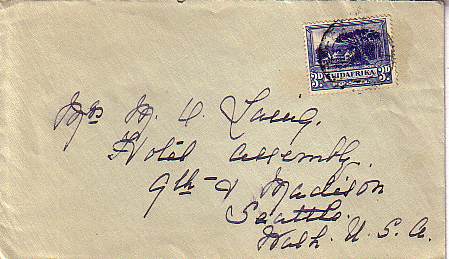 3D SUIDAFRIKA 3D
Mrs M. H. Laing.
Hotel Assembly.
9th & Madison
Seattle.
Wash. U.S.A.